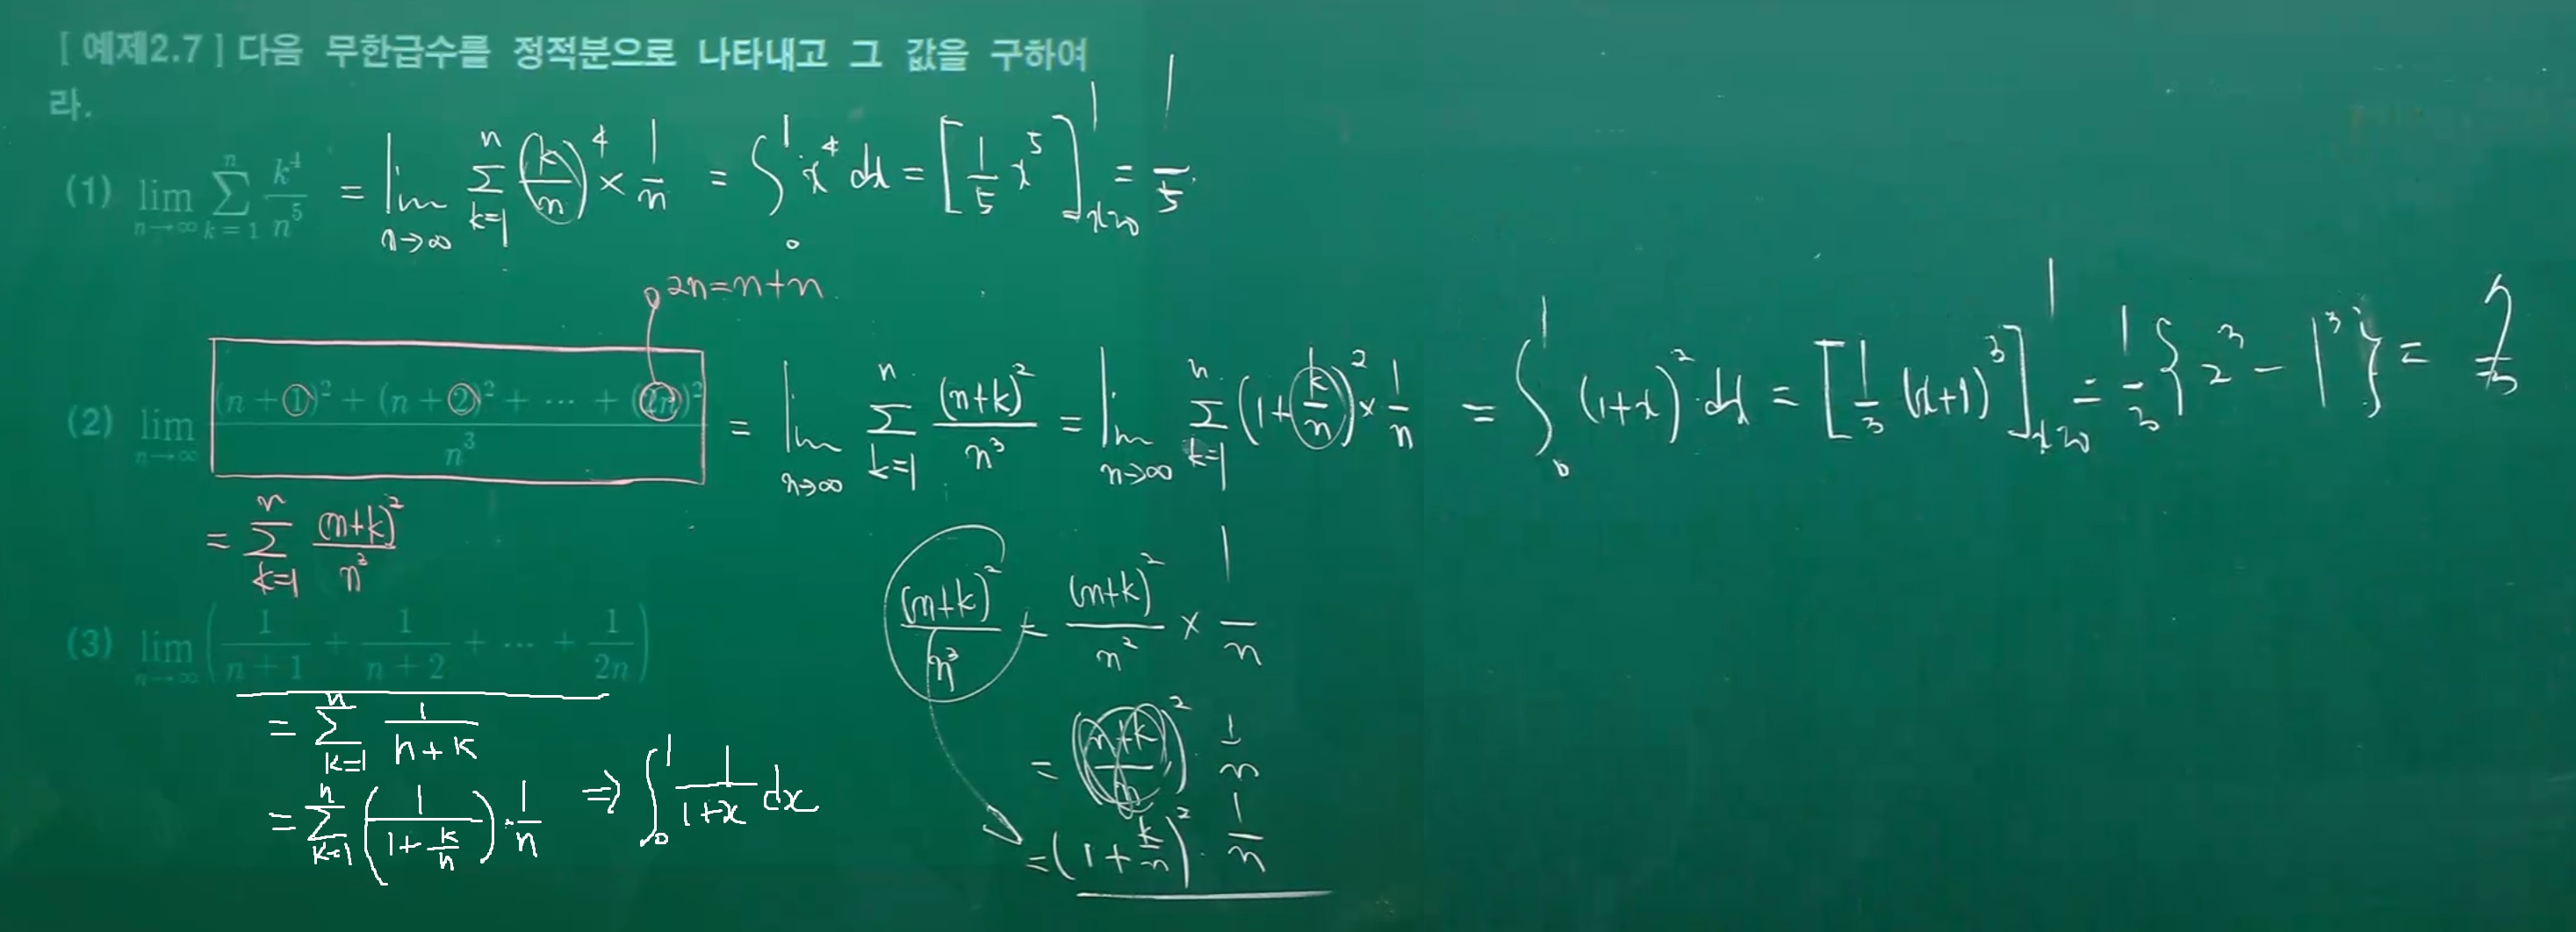 [ 예제2.7 ] 다음 무한급수를 정적분으로 나타내고 그 값을 구하여
라.
(1) lim_{n→∞} Σ_{k=1}^{n} k⁴/n⁵ = lim_{n→∞} Σ_{k=1}^{n} (k/n)⁴ × 1/n = ∫₀¹ x⁴ dx = [1/5 x⁵]_{x=0}^{1} = 1/5
2n=n+n
(2) lim_{n→∞} ((n+1)² + (n+2)² + ⋯ + (2n)²)/n³ = lim_{n→∞} Σ_{k=1}^{n} (n+k)²/n³ = lim_{n→∞} Σ_{k=1}^{n} (1+k/n)² × 1/n = ∫₀¹ (1+x)² dx = [1/3 (x+1)³]_{x=0}^{1} = 1/3 {2³ − 1³} = 7/3
= Σ_{k=1}^{n} (n+k)²/n³
(n+k)²/n³ = (n+k)²/n² × 1/n
= ((n+k)/n)² · 1/n
= (1 + k/n)² · 1/n
(3) lim_{n→∞} (1/(n+1) + 1/(n+2) + ⋯ + 1/2n)
= Σ_{k=1}^{n} 1/(n+k)
= Σ_{k=1}^{n} (1/(1+k/n)) · 1/n ⇒ ∫₀¹ 1/(1+x) dx